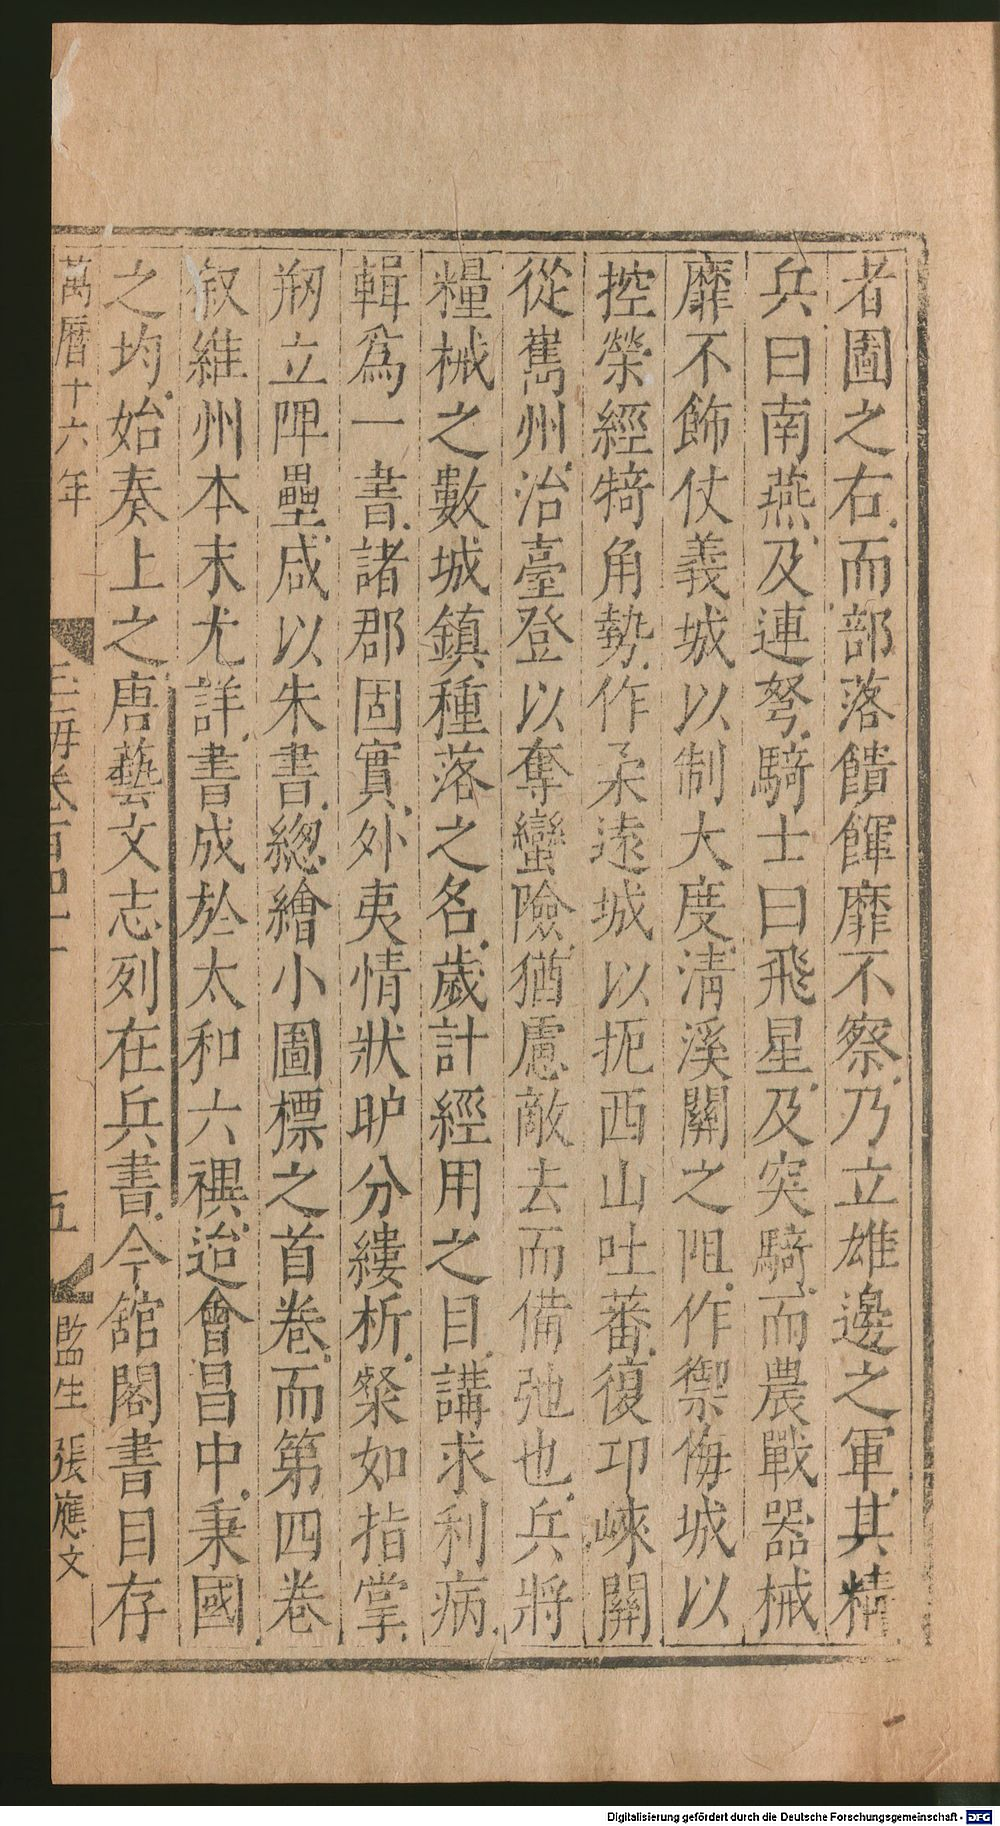 者圖之右而部落饋餫靡不察乃立雄邊之軍其精
兵曰南燕及連弩騎士曰飛星及突騎而農戰器械
靡不飾仗義城以制大度淸溪關之阻作禦侮城以
控榮經犄角勢作柔遠城以扼西山吐蕃復卭崍關
從嶲州治臺登以奪蠻險猶慮敵去而備弛也兵將
糧械之數城鎮種落之名歲計經用之目講求利病
輯爲一書諸郡固實外夷情狀昈分縷析粲如指掌
剏立陴壘咸以朱書緫繪小圖標之首卷而第四卷
叙維州本末尤詳書成於太和六禩迨會昌中秉國
之均始奏上之唐藝文志列在兵書今舘閣書目存
萬曆十六年 玉海卷百四十一 五 監生 張應文
Digitalisierung gefördert durch die Deutsche Forschungsgemeinschaft - DFG